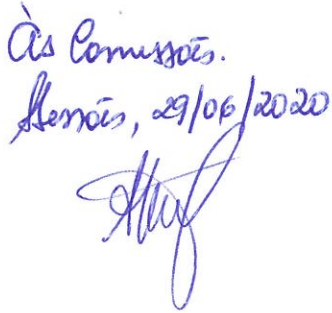 Às Comissões.
Sessões, 29/06/2020